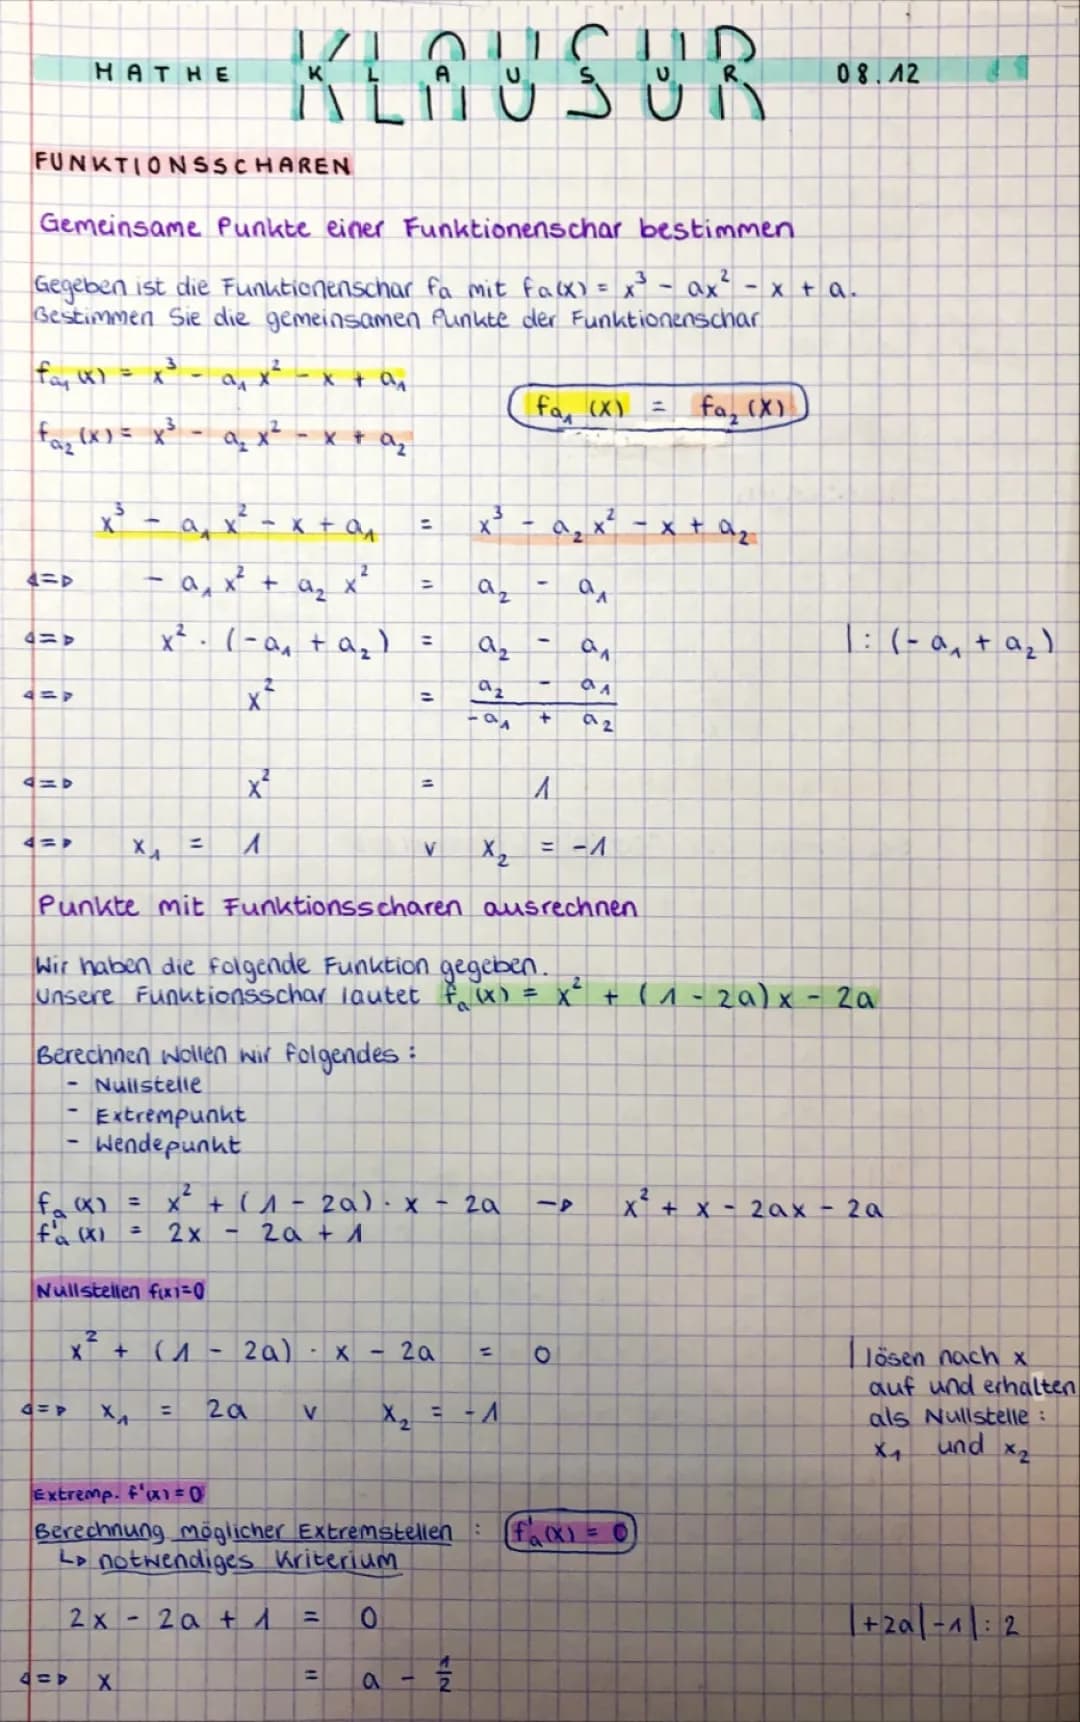 MATHE KLAUSUR 08.12
FUNKTIONSSCHAREN
Gemeinsame Punkte einer Funktionenschar bestimmen
Gegeben ist die Funktionenschar fa mit fa(x) = x³ - ax² - x + a.
Bestimmen Sie die gemeinsamen Punkte der Funktionenschar
fa₁(x) = x³ - a₁x² - x + a₁
fa₁(x) = fa₂(x)
fa₂(x) = x³ - a₂x² - x + a₂
x³ - a₁x² - x + a₁ = x³ - a₂x² - x + a₂
<=> - a₁x² + a₂x² = a₂ - a₁
<=> x² · (-a₁ + a₂) = a₂ - a₁ |: (-a₁ + a₂)
<=> x² = (a₂ - a₁)/(-a₁ + a₂)
<=> x² = 1
<=> x₁ = 1 v x₂ = -1
Punkte mit Funktionsscharen ausrechnen
Wir haben die folgende Funktion gegeben.
Unsere Funktionsschar lautet fa(x) = x² + (1 - 2a)x - 2a
Berechnen wollen wir folgendes:
- Nullstelle
- Extrempunkt
- Wendepunkt
fa(x) = x² + (1 - 2a) · x - 2a -> x² + x - 2ax - 2a
f'a(x) = 2x - 2a + 1
Nullstellen f(x)=0
x² + (1 - 2a) · x - 2a = 0 | lösen nach x
auf und erhalten
<=> x₁ = 2a v x₂ = -1
als Nullstelle:
x₁ und x₂
Extremp. f'(x)=0
Berechnung möglicher Extremstellen : f'a(x) = 0
↳ notwendiges Kriterium
2x - 2a + 1 = 0 |+2a|-1|:2
<=> x = a - 1/2